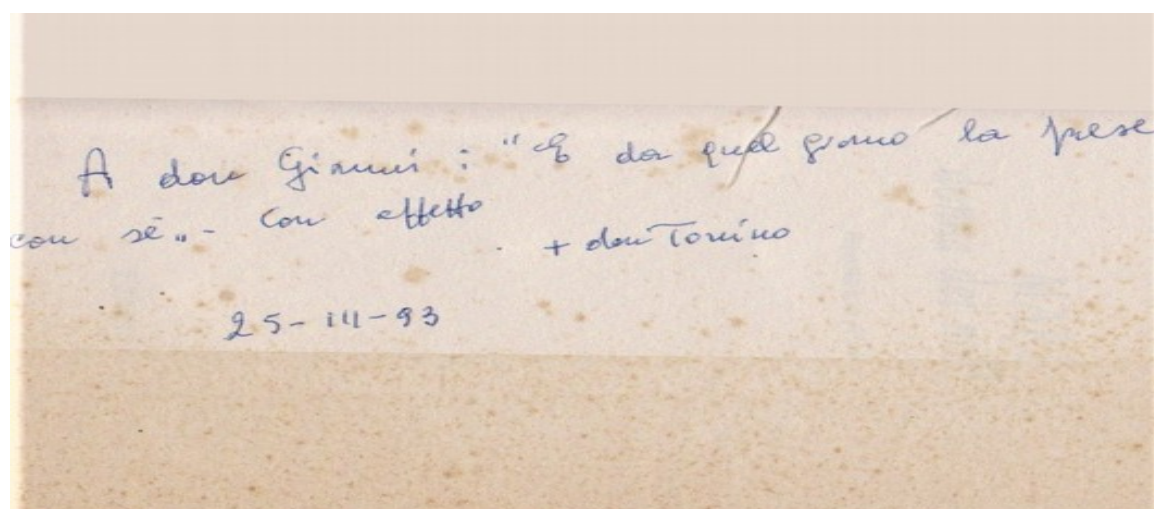 A don Gianni : "E da quel giorno la prese
con sé„ - Con affetto
+ don Tonino
25-III-93